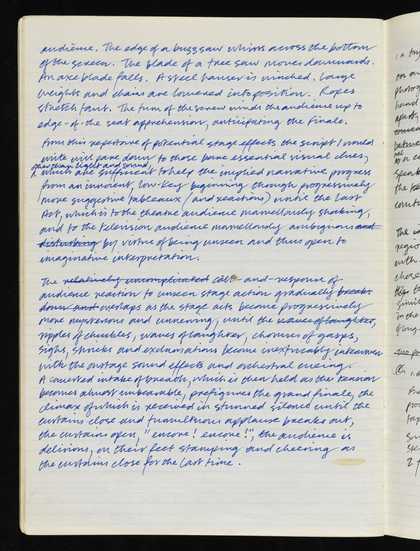 audience. The edge of a buzz saw whirrs across the bottom
of the screen. The blade of a tree saw moves downwards.
An axe blade falls. A steel hawser is winched. Large
weights and chains are lowered into position. Ropes
stretch taut. The turn of the screw winds the audience up to
edge-of-the seat apprehension, anticipating the finale.
From this repertoire of potential stage effects the script I would
write will pare down to those bare essential visual clues,
other than light and sound,
which are sufficient to help the implied narrative progress
from an innocent, low-key beginning though progressively
more suggestive tableaux (and reactions) until the Last
Act, which is to the theatre audience marvellously shocking,
and to the television audience marvellously ambiguous and
disturbing by virtue of being unseen and thus open to
imaginative interpretation.
The relatively uncomplicated call-and-response of
audience reaction to unseen stage action gradually breaks
down and overlaps as the stage acts become progressively
more mysterious and unnerving, until the waves of laughter,
ripples of chuckles, waves of laughter, choruses of gasps,
sighs, shrieks and exclamations become inextricably interwoven
with the onstage sound effects and orchestral cueing.
A concerted intake of breath, which is then held as the tension
becomes almost unbearable, prefigures the grand finale, the
climax of which is received in stunned silence until the
curtains close and tumultuous applause breaks out,
the curtains open, "encore! encore!", the audience is
delirious, on their feet stamping and cheering as
the curtains close for the last time.